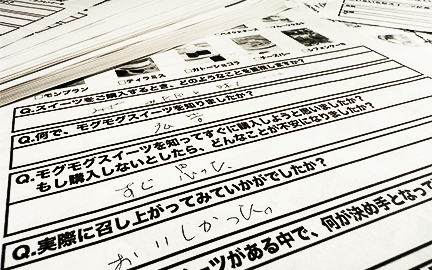 □モンブラン
□ティラミス
□ガトーショコラ
□チーズバー
Q.スイーツをご購入するとき、どのようなことを重視しますか?
Q.何で、モグモグスイーツを知りましたか?
Q.モグモグスイーツを知ってすぐに購入しようと思いましたか?
もし購入しないとしたら、どんなことが不安になりましたか?
すぐ思った
Q.実際に召し上がってみていかがでしたか?
おいしかった。
ーツがある中で、何が決め手となって